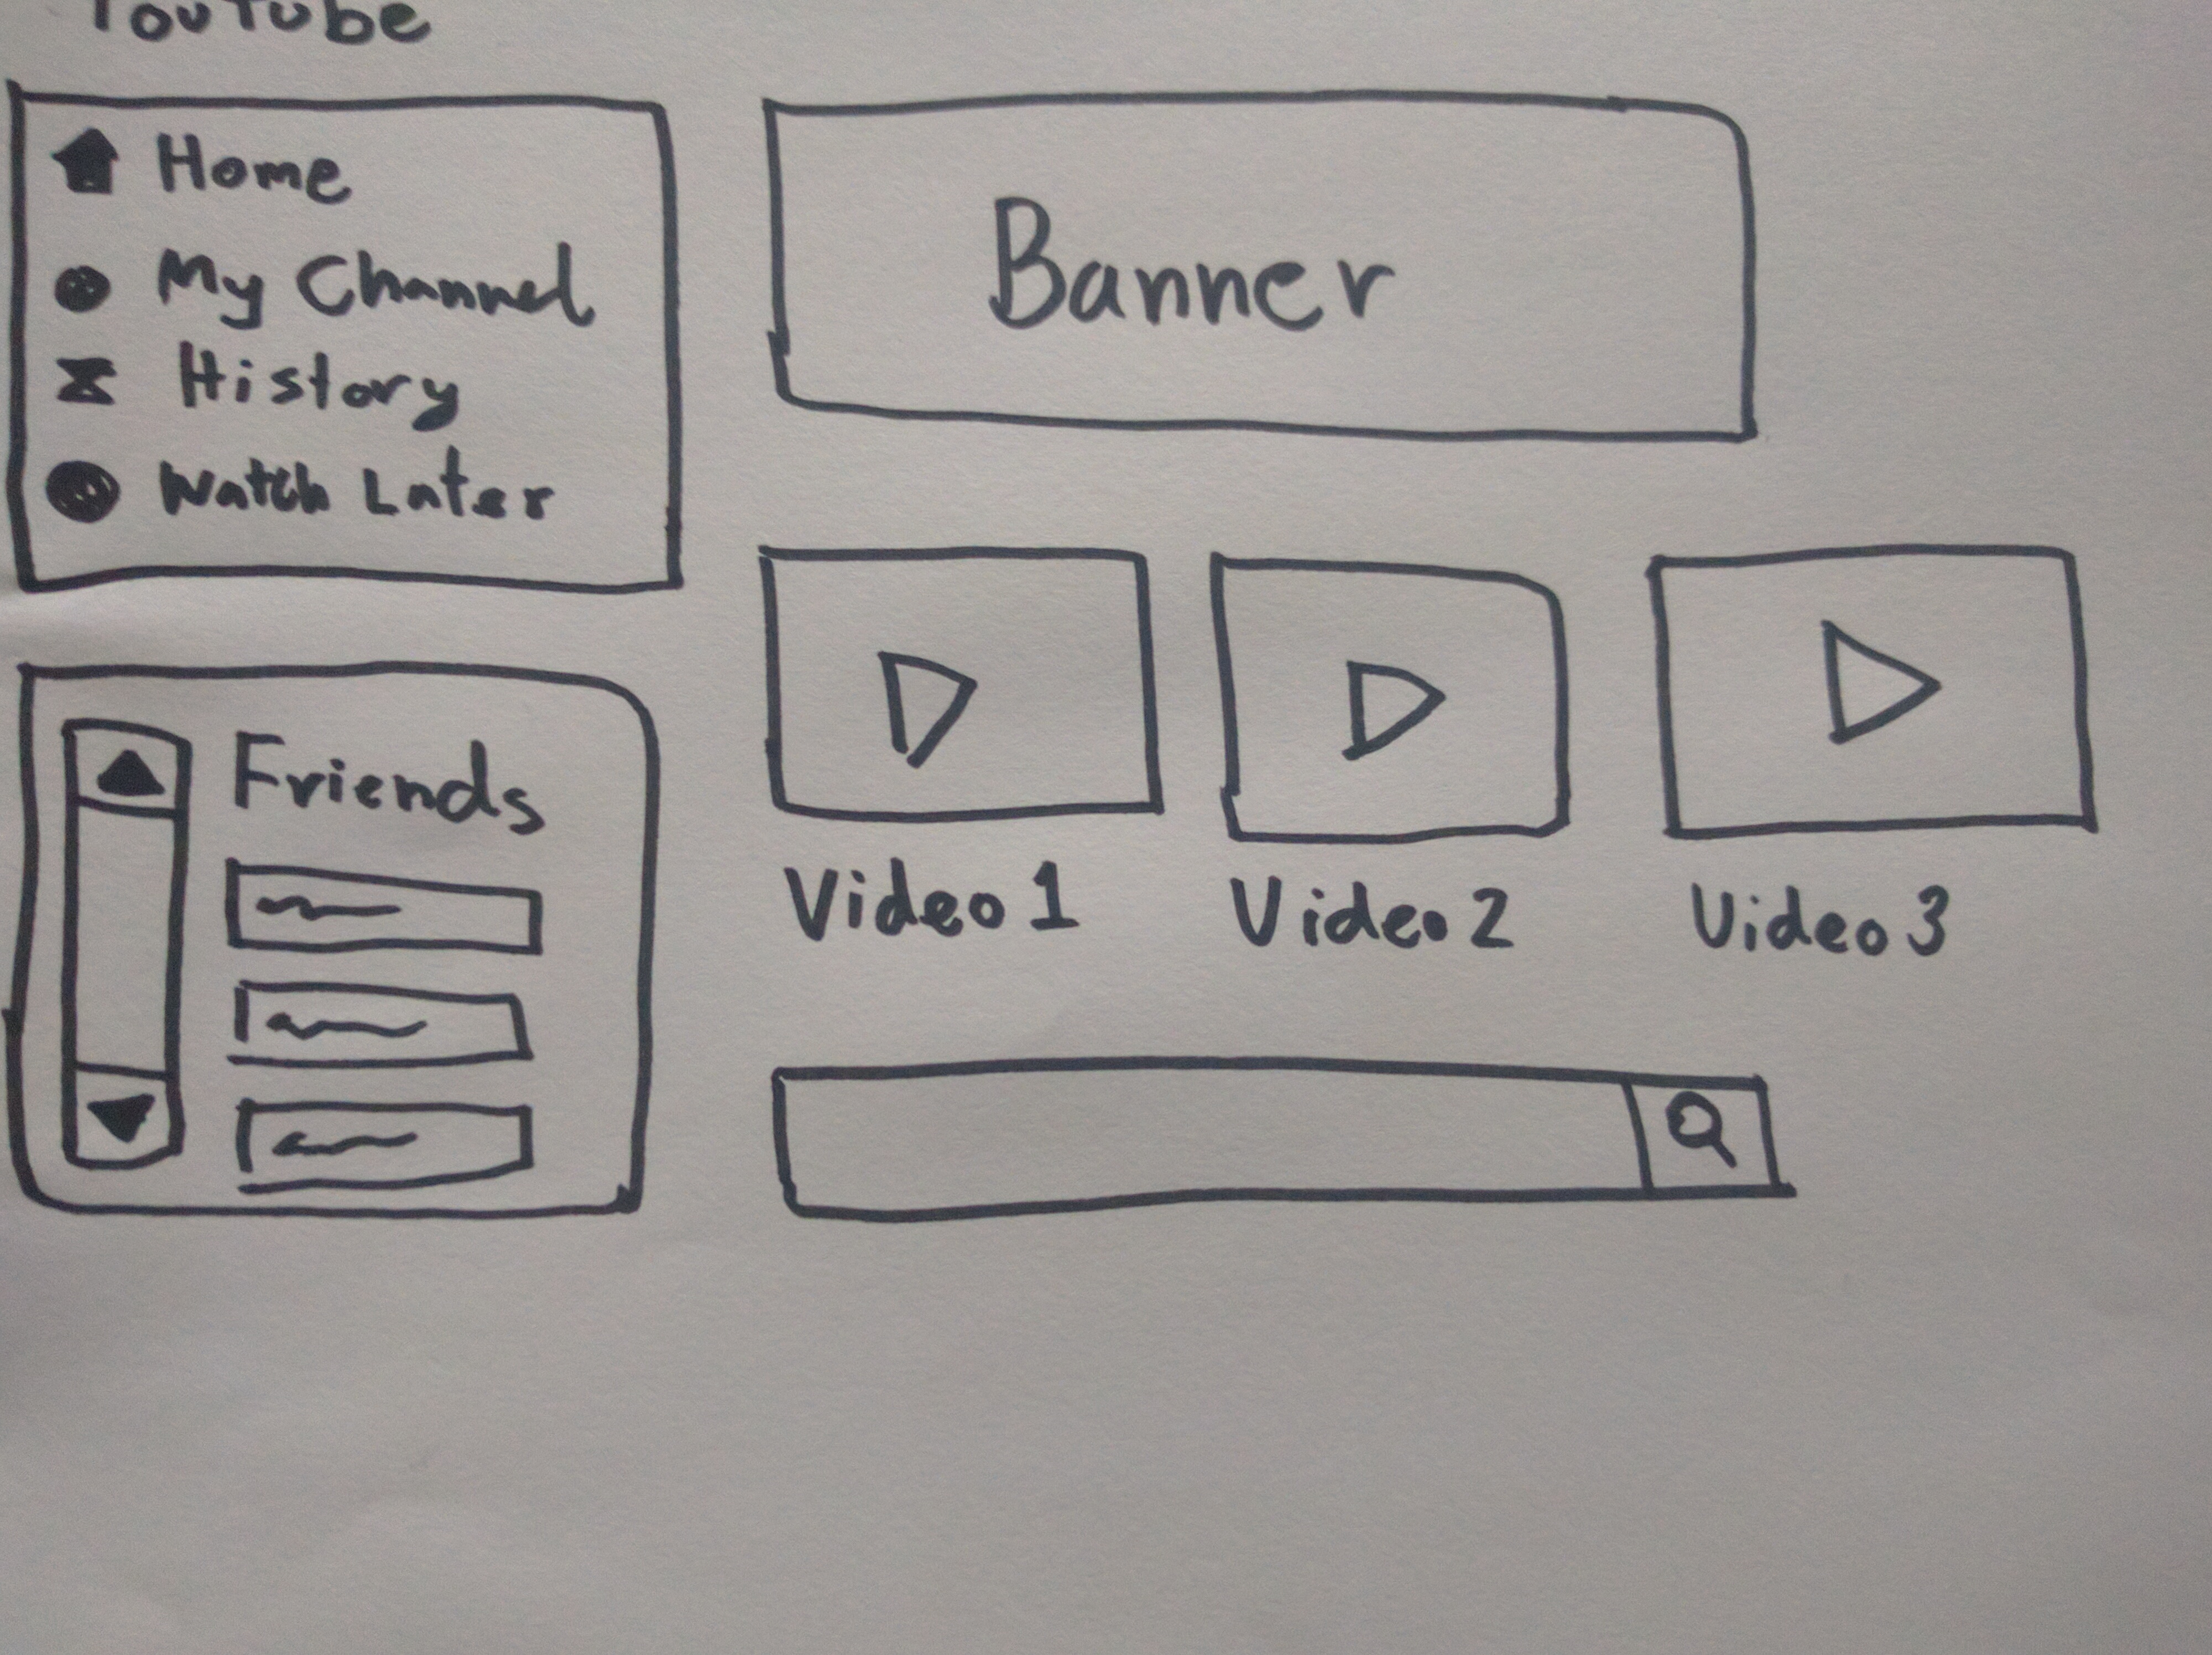 YouTube
Home
My Channel
History
Watch Later
Banner
Friends
Video 1
Video 2
Video 3